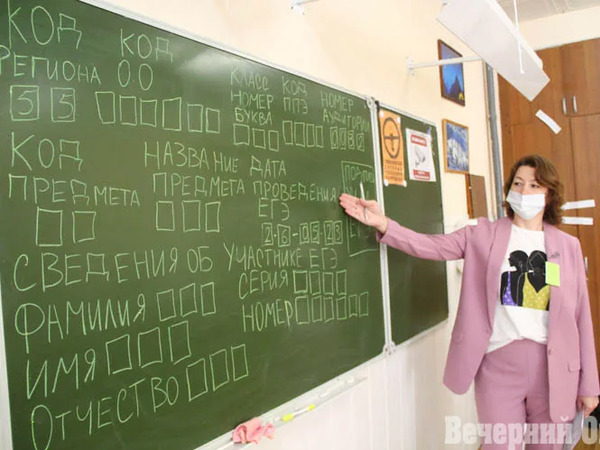 КОД
РЕГИОНА
55
КОД
ОО
КЛАСС
НОМЕР
БУКВА
КОД
ППЭ
НОМЕР
АУДИТОРИИ
КОД
ПРЕДМЕТА
НАЗВАНИЕ
ПРЕДМЕТА
ДАТА
ПРОВЕДЕНИЯ
ЕГЭ
26 05 23
СВЕДЕНИЯ ОБ УЧАСТНИКЕ ЕГЭ
ФАМИЛИЯ
ИМЯ
ОТЧЕСТВО
СЕРИЯ
НОМЕР
Вечерний